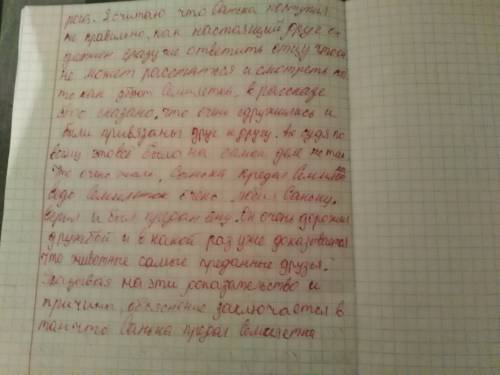 рога. Я считаю что Санька поступил
не правильно, как настоящий друг он
должен сразу же ответить отцу что он
не может расстаться и смотреть на
то как убьют Семилетка, в рассказе
это сказано, что очень сдружились и
были привязаны друг к другу. Но судя по
всему это всё было на самом деле не так.
Это очень жаль, Санька предал Семилетка
ведь Семилеток очень любил Саньку.
верил и был предан ему. Он очень дорожил
дружбой и в какой раз уже доказывается
что животные самые преданные друзья.
на эти доказательство и
причины, объяснение заключается в
том что Санька предал Семилетка